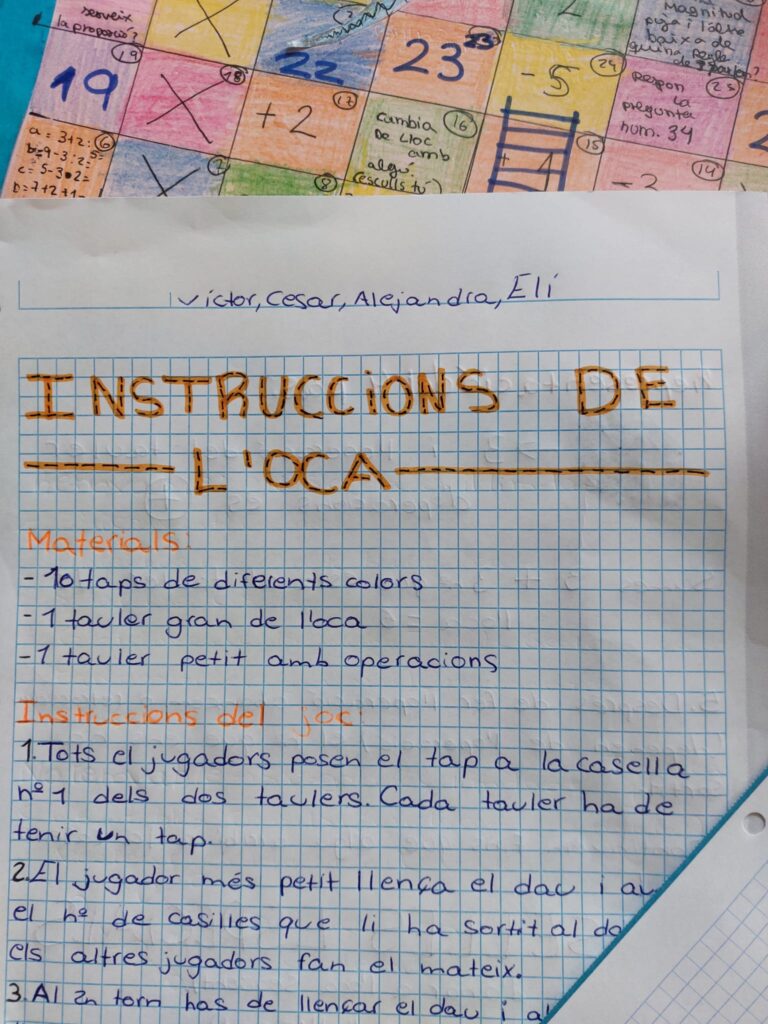 serveix
la proporció?
19
19
X
18
22
23
23
-5
24
Magnitud
puja i l'altre
baixa de
respon
la
pregunta
num. 34
25
+2
17
cambia
de lloc
amb
algú
(esculls tú)
16
+ 1
15
-3
14
a = 3+2:
b=9-3:2=
c=5-3•2=
D=7+2+1-
6
7
8
Victor, Cesar, Alejandra, Eli
INSTRUCCiONS DE
L'OCA
Materials:
- 10 taps de diferents colors
- 1 tauler gran de l'oca
- 1 tauler petit amb operacions
Instruccions del joc:
1. Tots el jugadors posen el tap a la casella
nº 1 dels dos taulers. Cada tauler ha de
tenir un tap.
2. El jugador més petit llença el dau i
el nº de casilles que li ha sortit al
els altres jugadors fan el mateix.
3. Al 2n torn has de llençar el dau i